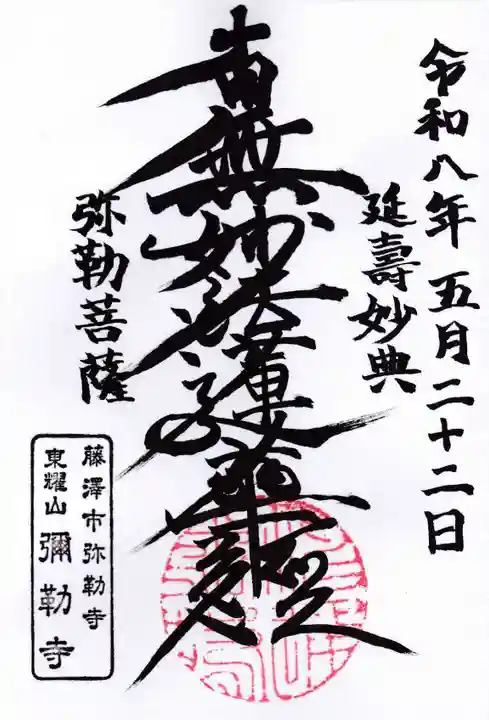 令和八年五月二十二日
延壽妙典
南無妙法蓮華経
弥勒菩薩
藤澤市弥勒寺
東耀山 彌勒寺